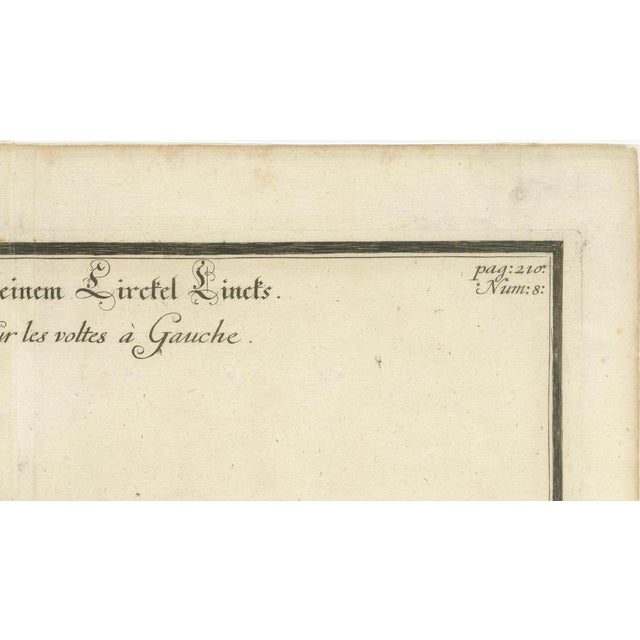 einem Circkel Lincks.
ur les voltes à Gauche.
pag: 210:
Num: 8: